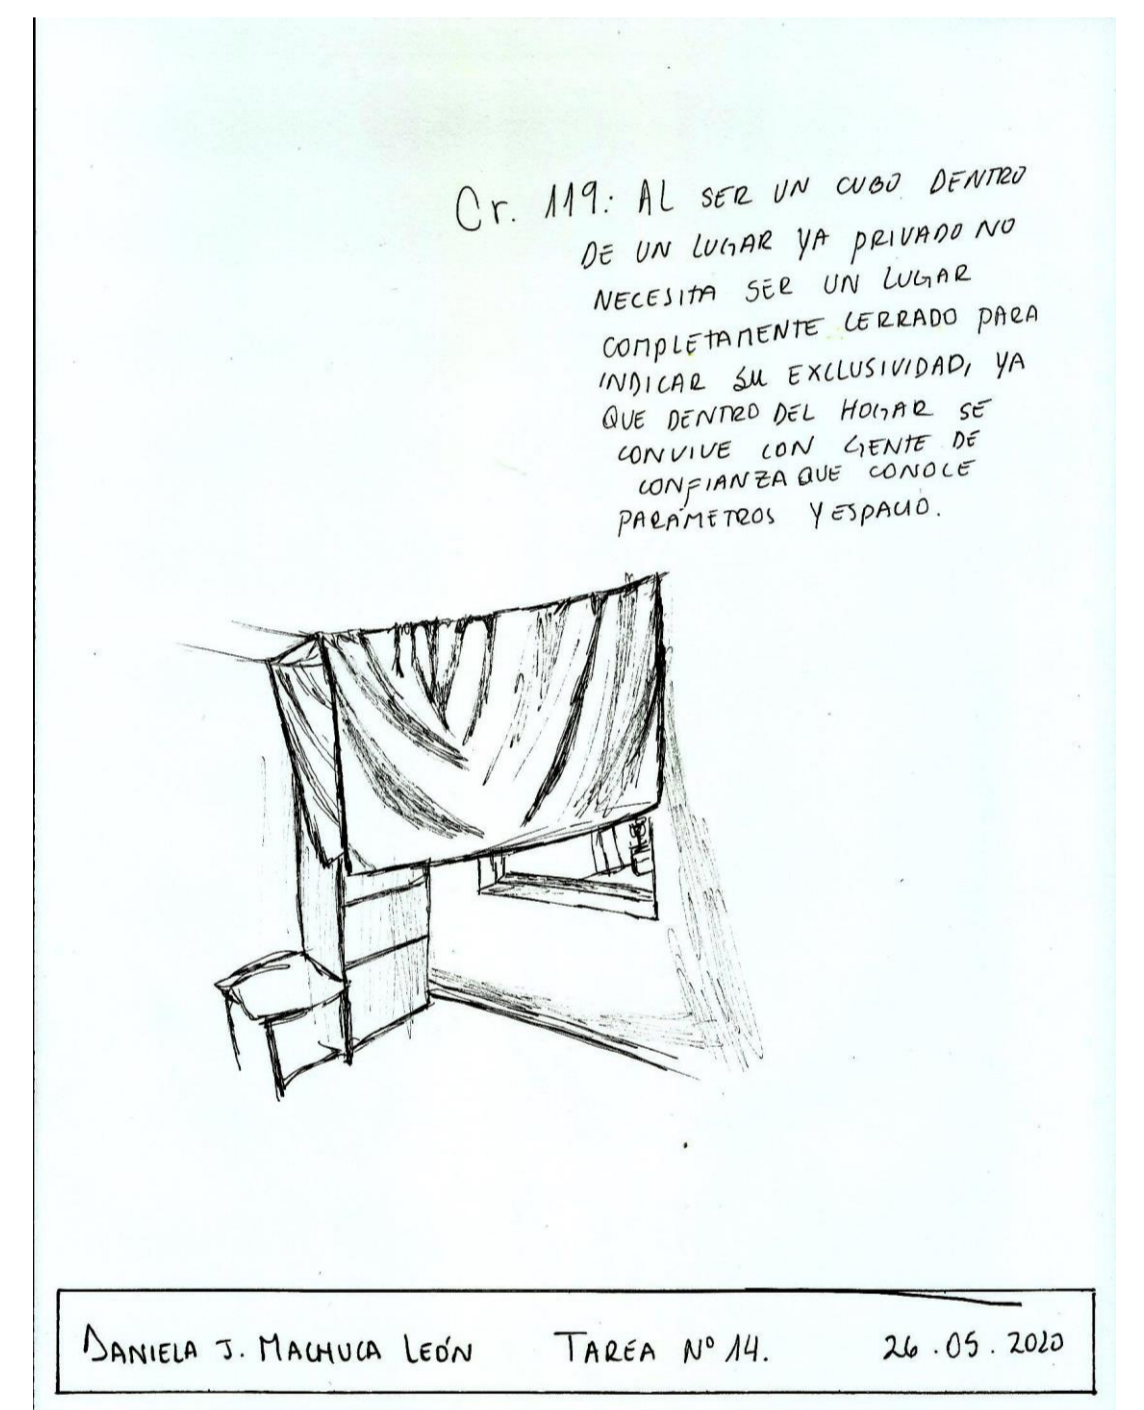 Cr. 119.: AL SER UN CUBO DENTRO
DE UN LUGAR YA PRIVADO NO
NECESITA SER UN LUGAR
COMPLETAMENTE CERRADO PARA
INDICAR SU EXCLUSIVIDAD, YA
QUE DENTRO DEL HOGAR SE
CONVIVE CON GENTE DE
CONFIANZA QUE CONOCE
PARÁMETROS Y ESPACIO.
DANIELA J. MACHUCA LEÓN TAREA Nº 14. 26.05.2020